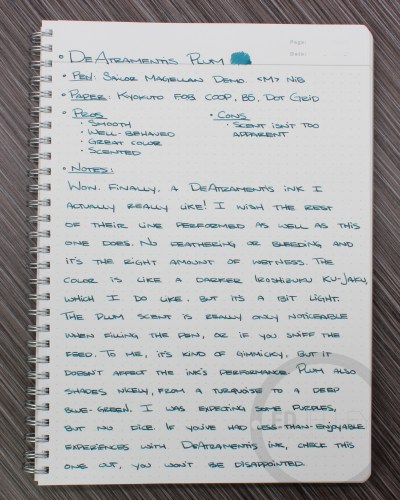 Page:
Date:
• DeAtramentis Plum
• Pen: Sailor Magellan Demo. <M> Nib
• Paper: Kyokuto FOB COOP, B5, Dot Grid
• Pros
• Smooth
• Well-Behaved
• Great Color
• Scented
• Cons
• Scent isn't too
apparent
• Notes:
Wow. Finally, a DeAtramentis ink I
actually really like! I wish the rest
of their line performed as well as this
one does. No feathering or bleeding and
it's the right amount of wetness. The
color is like a darker Iroshizuku Ku-Jaku,
which I do like, but it's a bit light.
The plum scent is really only noticeable
when filling the pen, or if you sniff the
feed. To me, it's kind of gimmicky, but it
doesn't affect the ink's performance. Plum also
shades nicely, from a turquoise to a deep
blue-green. I was expecting some purples,
but no dice. If you've had less-than-enjoyable
experiences with DeAtramentis ink, check this
one out, you won't be disappointed.